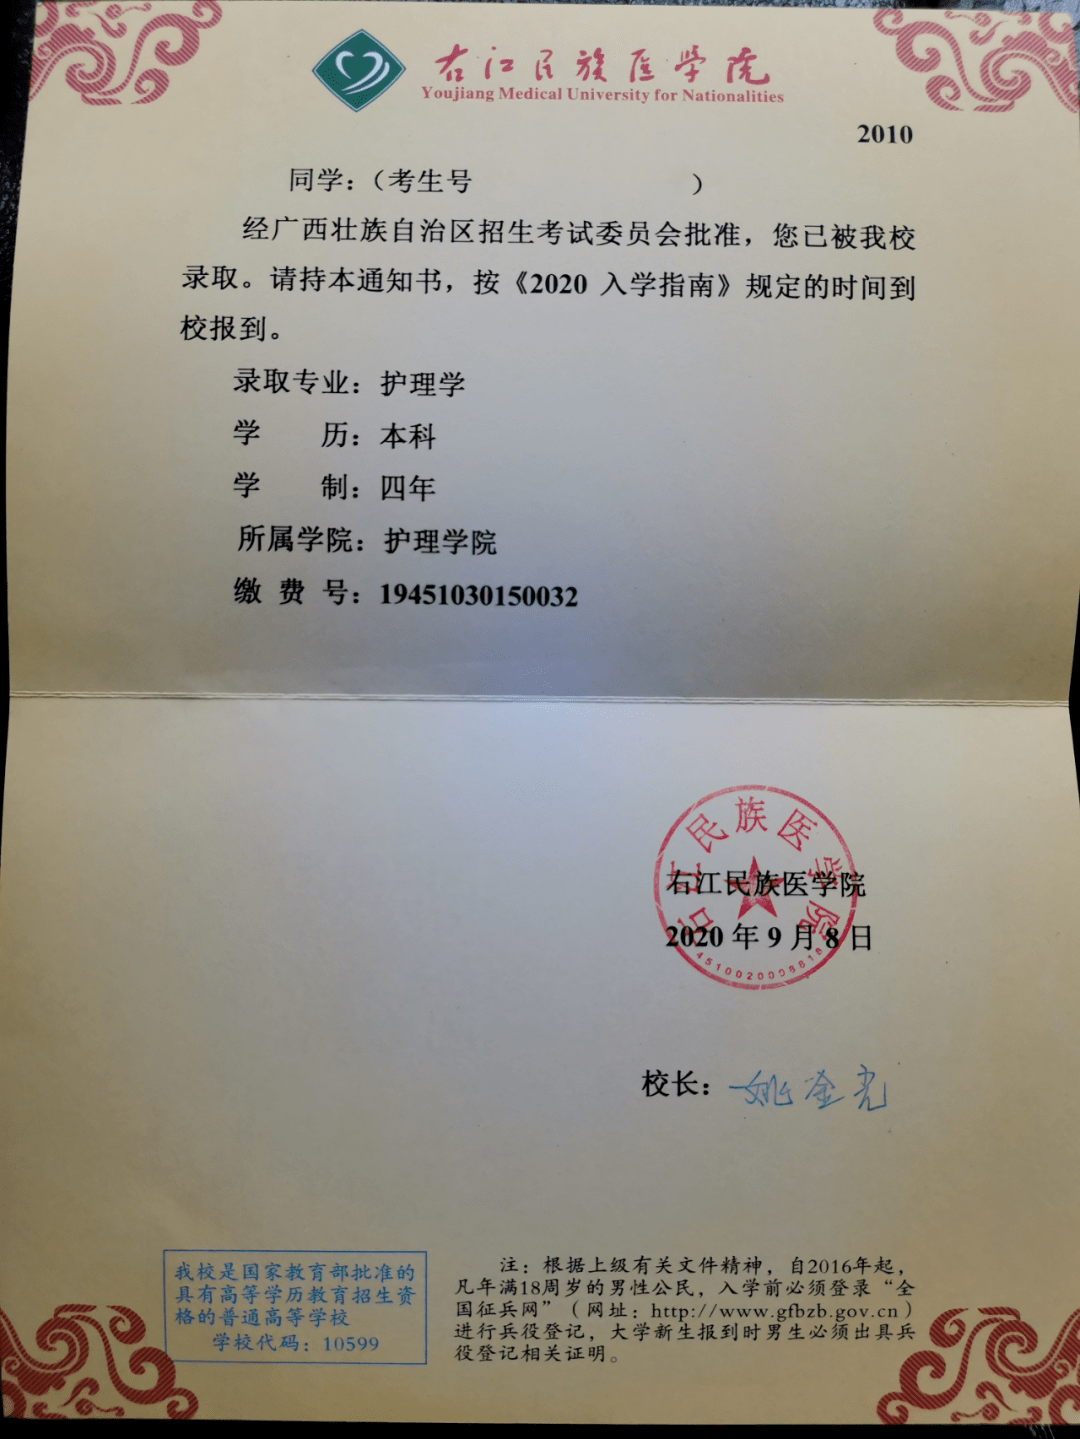 右江民族医学院
Youjiang Medical University for Nationalities
2010
同学：（考生号 ）
经广西壮族自治区招生考试委员会批准，您已被我校
录取。请持本通知书，按《2020 入学指南》规定的时间到
校报到。
录取专业：护理学
学 历：本科
学 制：四年
所属学院：护理学院
缴 费 号：19451030150032
右江民族医学院
右江民族医学院
2020 年 9 月 8 日
校长：姚金光
我校是国家教育部批准的
具有高等学历教育招生资
格的普通高等学校
学校代码：10599
注：根据上级有关文件精神，自2016年起，
凡年满18周岁的男性公民，入学前必须登录“全
国征兵网”（网址：http://www.gfbzb.gov.cn）
进行兵役登记，大学新生报到时男生必须出具兵
役登记相关证明。